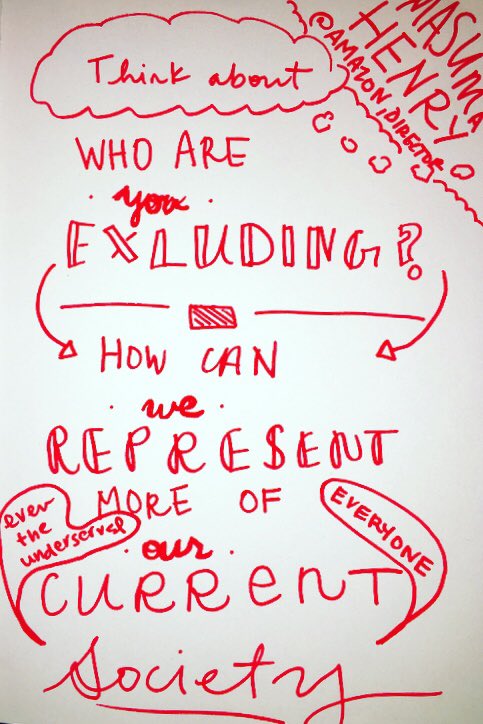 MASUMA
HENRY
@AMAZON, DIRECTOR
Think about
WHO ARE
you
EXLUDING?
HOW CAN
we
REPRESENT
MORE OF
our
CURRENT
Society
ever
the
underserved
EVERYONE